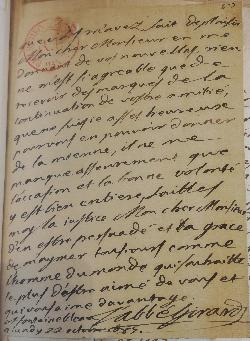 que vous m'avez fait de plaisir
Mon cher Monsieur en me
donnant de vos nouvelles, rien
ne m'est si agreable que de
recevoir des marques de la
continuation de vostre amitié,
que ne suis ie assés heureuse
pour vous en pouvoir donner
de la mienne, il ne me
manque assurement que
l'occasion et la bonne volonté
y est bien entiere, faittes
moy la justice Mon cher Monsieur
d'en estre persuadé et la grace
de m'aymer tousjours comme
l'homme du monde qui souhaitte
le plus d'estre aimé de vous et
qui vous aime davantage.
à fontainebleau l'abbé Girard
22 octobre